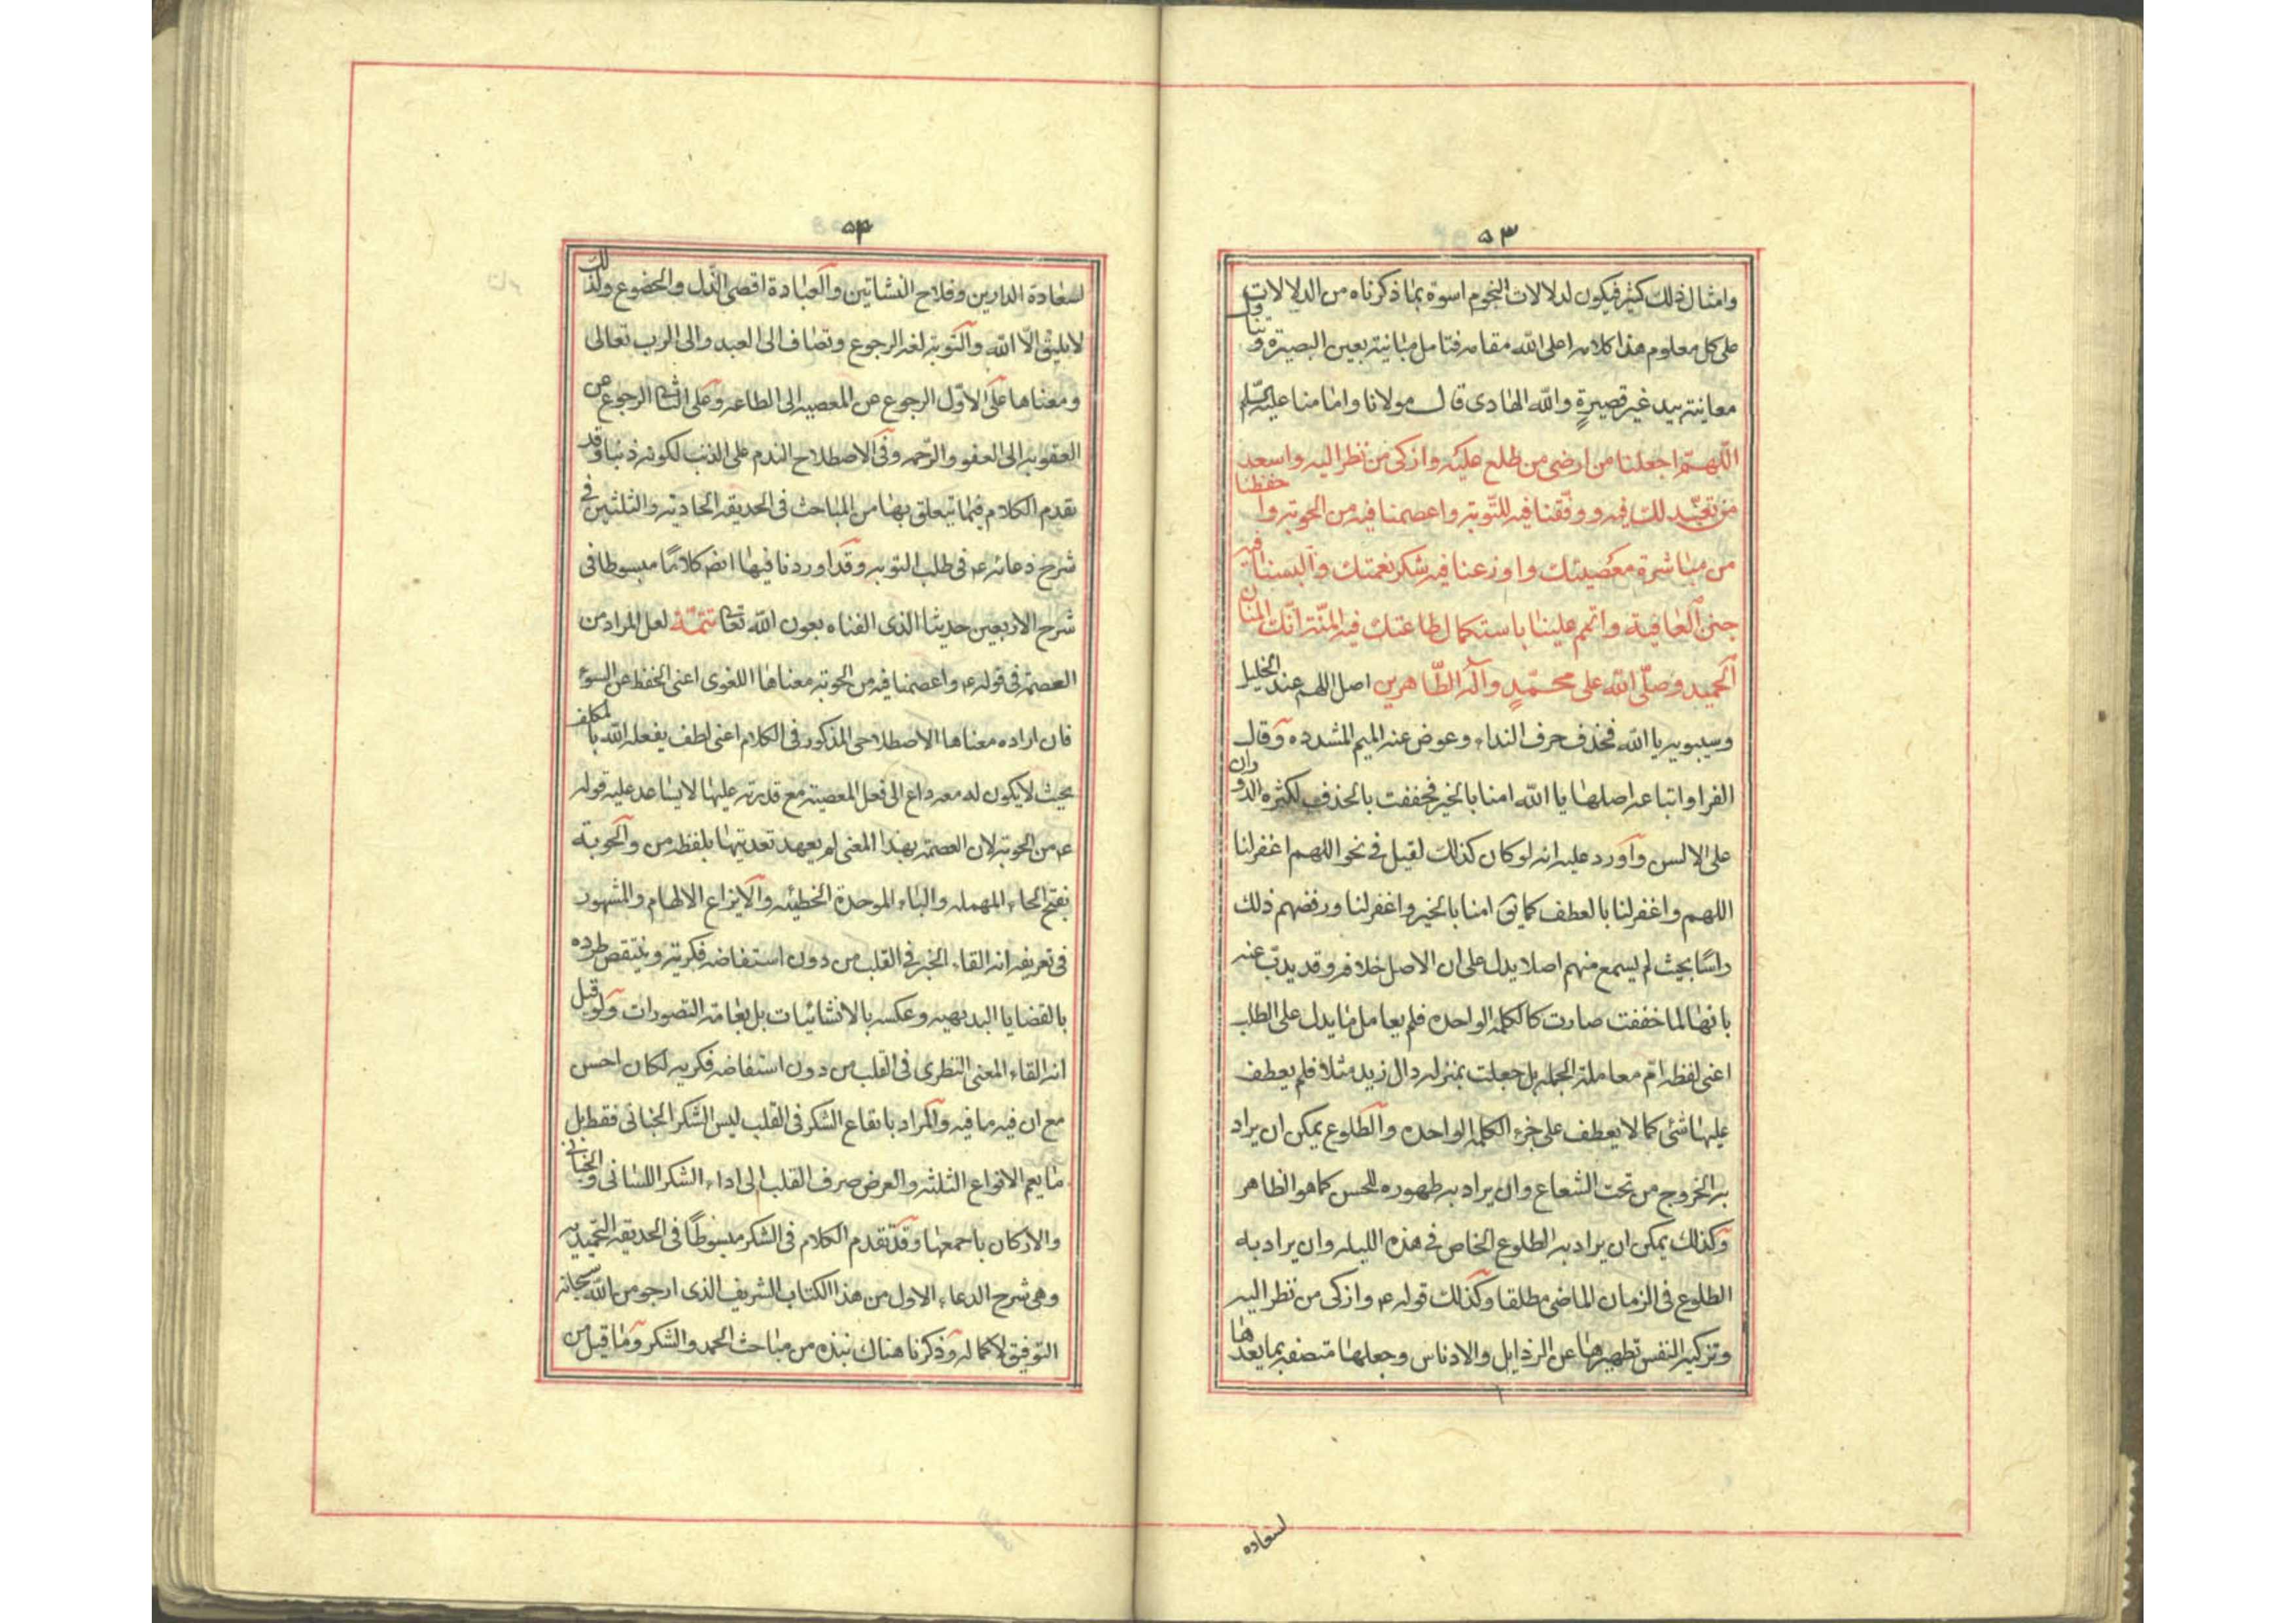 ٥٣
وامثال ذلك كثير فيكون لدلالات النجوم اسوة بما ذكرناه من الدلالات
على كل معلوم هذا كلامه اعلى الله مقامه فتامل مبانيه بعين البصيرة وتناول
معانيته بيد غير قصيرةٍ والله الهادى قال مولانا وامامنا عليه السلم
اللّهمّ اجعلنا من ارضى من طلع عليه وازكى من نظر اليه واسعد
من تعبّد لك فيه ووفّقنا فيه للتّوبة واعصمنا فيه من الحوبة واحفظنا
من مباشرة معصيتك واوزعنا فيه شكر نعمتك والبسنا فيه
جنن العافية واتمم علينا باستكمال طاعتك فيه المنّة انّك المنان
الحميد وصلّى الله على محمّدٍ وآله الطّاهرين اصل اللهم عند الخليل
وسيبويه يا الله فحذف حرف النداء وعوض عنه الميم المشدده وقال
الفرا واتباعه اصلها يا الله امنا بالخير فخففت بالحذف لكثره الدوران
على الالسن واورد عليه انه لو كان كذلك لقيل فى نحو اللهم اغفر لنا
اللهم واغفر لنا بالعطف كما يق امنا بالخير واغفر لنا ورفضهم ذلك
راسًا بحيث لم يسمع منهم اصلا يدل على ان الاصل خلافه وقد يذبّ عنه
بانها لما خففت صارت كالكلمة الواحده فلم يعامل ما يدل على الطلب
اعنى لفظه امّ معاملة الجمله بل جعلت بمنزله دال زيد مثلا فلم يعطف
عليها شئ كما لا يعطف على جزء الكلمة الواحده والطلوع يمكن ان يراد
به الخروج من تحت الشعاع وان يراد به ظهوره للحس كما هو الظاهر
وكذلك يمكن ان يراد به الطلوع الخاص فى هذه الليله وان يراد به
الطلوع فى الزمان الماضى مطلقا وكذلك قوله ع وازكى من نظر اليه
وتزكيه النفس تطهيرها عن الرذايل والادناس وجعلها متصفة بما يعدها
لسعاده
٥٤
لسعادة الدارين وفلاح النشاتين والعبادة اقصى الذّل والخضوع ولذلك
لا يليق الّا الله والتوبة لغه الرجوع وتضاف الى العبد والى الرب تعالى
ومعناها على الاوّل الرجوع عن المعصيه الى الطاعه وعلى الثانى الرجوع عن
العقوبه الى العفو والرّحمه وفى الاصطلاح الندم على الذنب لكونه ذنبا وقد
تقدم الكلام فيما يتعلق بها من المباحث فى الحديقة الحادية والثلثين فى
شرح دعائه ع فى طلب التوبه وقد اوردنا فيها ايضا كلامًا مبسوطا فى
شرح الاربعين حديثا الذى الفناه بعون الله تعالى تتمّة لعل المراد من
العصمة فى قوله ع واعصمنا فيه من الحوبة معناها اللغوى اعنى الحفظ عن السوء
فان اراده معناها الاصطلاحى المذكور فى الكلام اعنى لطف يفعله الله بالمكلف
بحيث لا يكون له معه داع الى فعل المعصية مع قدرته عليها لا يساعد عليه قوله
ع من الحوبة لان العصمة بهذا المعنى لم يعهد تعديتها بلفظه من والحوبة
بفتح الحاء المهمله والباء الموحدة الخطيئه والايزاع الالهام والمشهور
فى تعريفه انه القاء الخير فى القلب من دون استفاضه فكرية وينتقض طرده
بالقضايا البديهيه وعكسه بالانشائيات بل بعامه التصورات ولو قيل
انه القاء المعنى النظرى فى القلب من دون استفاضه فكريه لكان احسن
مع ان فيه ما فيه والمراد بايقاع الشكر فى القلب ليس الشكر الجنانى فقط بل
ما يعم الانواع الثلثه والغرض صرف القلب الى اداء الشكر اللسانى والجنانى
والاركان باجمعها وقد تقدم الكلام فى الشكر مبسوطًا فى الحديقة التّحميديه
وهى شرح الدعاء الاول من هذا الكتاب الشريف الذى ارجو من الله سبحانه
التوفيق لاكماله وذكرنا هناك نبذه من مباحث الحمد والشكر وما قيل من